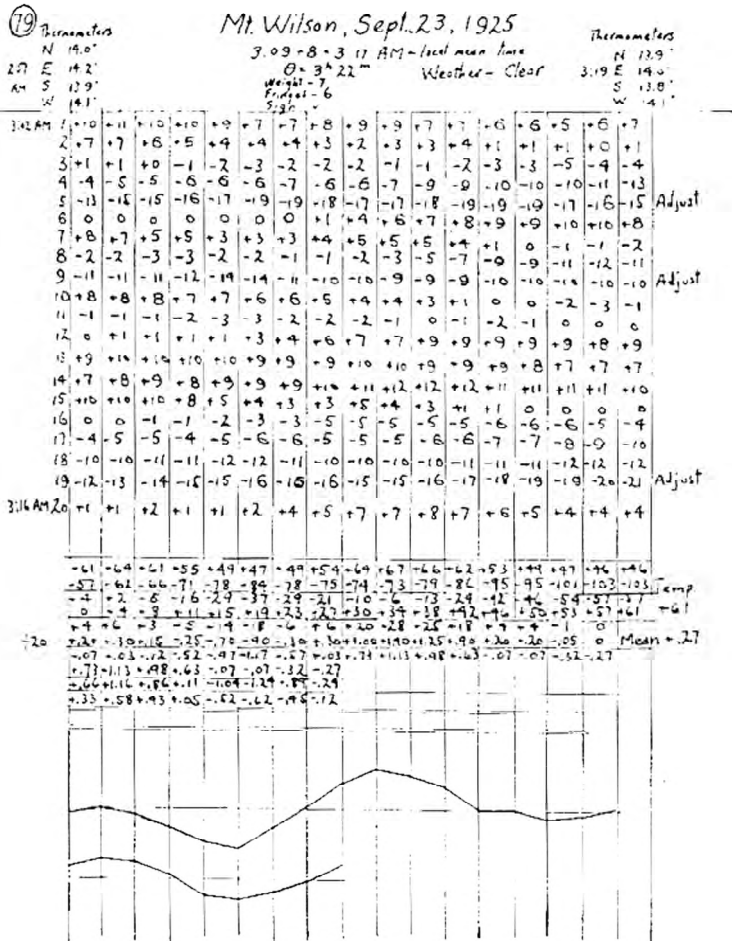 79
Thermometers
N 14.0°
2.57 E 14.2°
AM S 13.9°
W 14.1°
Mt. Wilson, Sept. 23, 1925
3.09 - 8 - 3 17 AM - local mean time
θ = 3ʰ 22ᵐ Weather - Clear
Weight - 7
Fringes - 6
Sign
Thermometers
N 13.9°
3:19 E 14.0°
S 13.8°
W 14.1°
3:02 AM 1 +10 +11 +10 +10 +9 +7 +7 +8 +9 +9 +7 +7 +6 +6 +5 +6 +7
2 +7 +7 +6 +5 +4 +4 +4 +3 +2 +3 +3 +4 +1 +1 +1 +0 +1
3 +1 +1 +0 -1 -2 -3 -2 -2 -2 -1 -1 -2 -3 -3 -5 -4 -4
4 -4 -5 -5 -6 -6 -6 -7 -6 -6 -7 -9 -9 -10 -10 -10 -11 -13
5 -13 -15 -15 -16 -17 -19 -19 -18 -17 -17 -18 -19 -19 -19 -17 -16 -15 Adjust
6 0 0 0 0 0 0 0 +1 +4 +6 +7 +8 +9 +9 +10 +10 +8
7 +8 +7 +5 +5 +3 +3 +3 +4 +5 +5 +5 +4 +1 0 -1 -1 -2
8 -2 -2 -3 -3 -2 -2 -1 -1 -2 -3 -5 -7 -9 -9 -11 -12 -11
9 -11 -11 -11 -12 -14 -14 -11 -10 -10 -9 -9 -9 -10 -10 -10 -10 -10 Adjust
10 +8 +8 +8 +7 +7 +6 +6 +5 +4 +4 +3 +1 0 0 -2 -3 -1
11 -1 -1 -1 -2 -3 -3 -2 -2 -2 -1 0 -1 -2 -1 0 0 0
12 0 +1 +1 +1 +1 +3 +4 +6 +7 +7 +9 +9 +9 +9 +9 +8 +9
13 +9 +10 +10 +10 +10 +9 +9 +9 +10 +10 +9 +9 +9 +8 +7 +7 +7
14 +7 +8 +9 +8 +9 +9 +9 +10 +11 +12 +12 +12 +11 +11 +11 +11 +10
15 +10 +10 +10 +8 +5 +4 +3 +3 +5 +4 +3 +1 +1 0 0 0 0
16 0 0 -1 -1 -2 -3 -3 -5 -5 -5 -5 -5 -6 -6 -6 -5 -4
17 -4 -5 -5 -4 -5 -6 -6 -5 -5 -5 -6 -6 -7 -7 -8 -9 -10
18 -10 -10 -11 -11 -12 -12 -11 -10 -10 -10 -10 -11 -11 -11 -12 -12 -12
19 -12 -13 -14 -15 -15 -16 -16 -16 -15 -15 -16 -17 -18 -19 -19 -20 -21 Adjust
3:16 AM 20 +1 +1 +2 +1 +1 +2 +4 +5 +7 +7 +8 +7 +6 +5 +4 +4 +4
+61 +64 +61 +55 +49 +47 +49 +54 +64 +67 +66 +62 +53 +49 +47 +46 +46
-57 -62 -66 -71 -78 -84 -78 -75 -74 -73 -79 -86 -95 -95 -101 -103 -103
+4 +2 -5 -16 -29 -37 -29 -21 -10 -6 -13 -24 -42 -46 -54 -57 -57 Temp
0 +4 +8 +11 +15 +19 +23 +27 +30 +34 +38 +42 +46 +50 +53 +57 +61 +61
+4 +6 +3 -5 -14 -18 -6 +6 +20 +28 +25 +18 +4 +4 -1 0
÷20 +.20 +.30 +.15 -.25 -.70 -.90 -.30 +.30 +1.00 +1.40 +1.25 +.90 +.20 +.20 -.05 0 Mean +.27
-.07 +.03 -.12 -.52 -.97 -1.17 -.57 +.03 +.73 +1.13 +.98 +.63 -.07 -.07 -.32 -.27
+.73 +1.13 +.98 +.63 -.07 -.07 -.32 -.27
+.66 +1.16 +.86 +.11 -1.04 -1.24 -.89 -.24
+.33 +.58 +.43 +.05 -.52 -.62 -.45 -.12